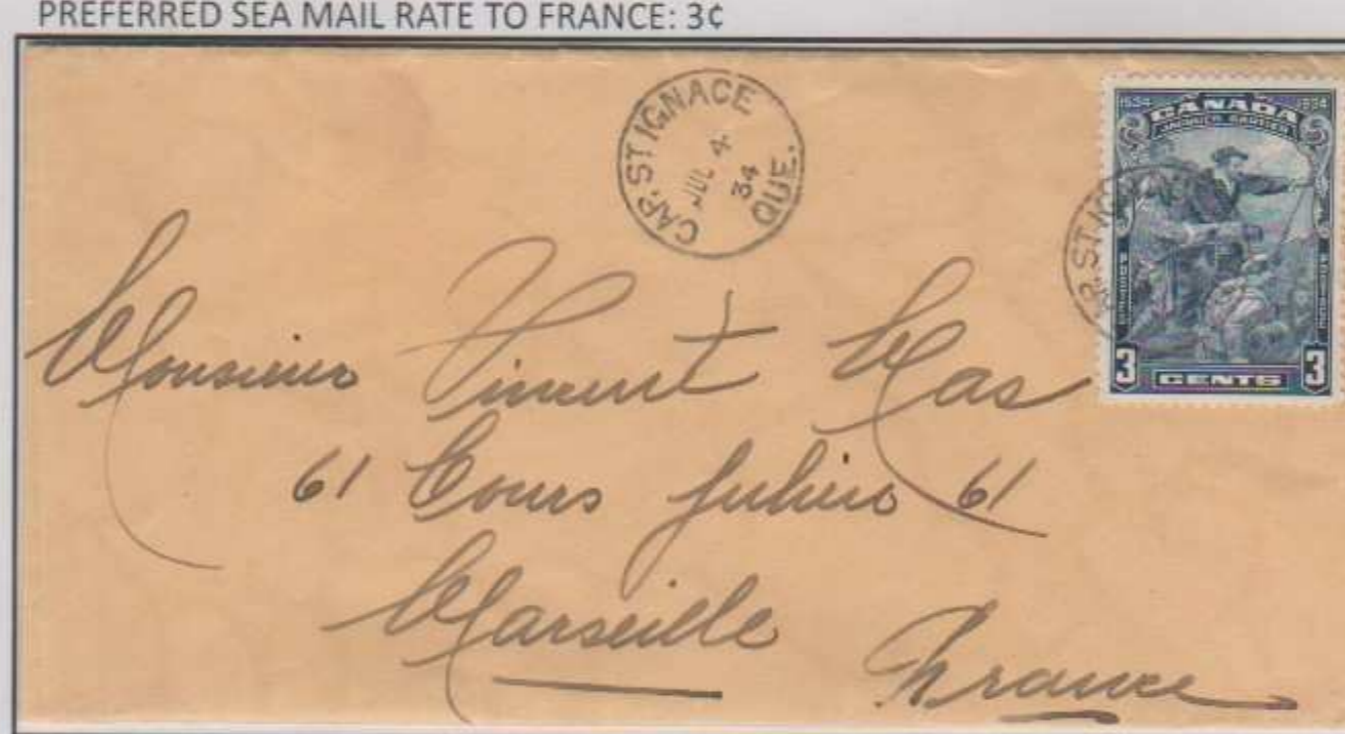 PREFERRED SEA MAIL RATE TO FRANCE: 3¢
CAP. ST IGNACE
JUL 4
34
QUE.
1534 1934
CANADA
JACQUES CARTIER
P. ST IG
3 CENTS 3
Monsieur Vincent Mas
61 Cours Julien 61
Marseille
France